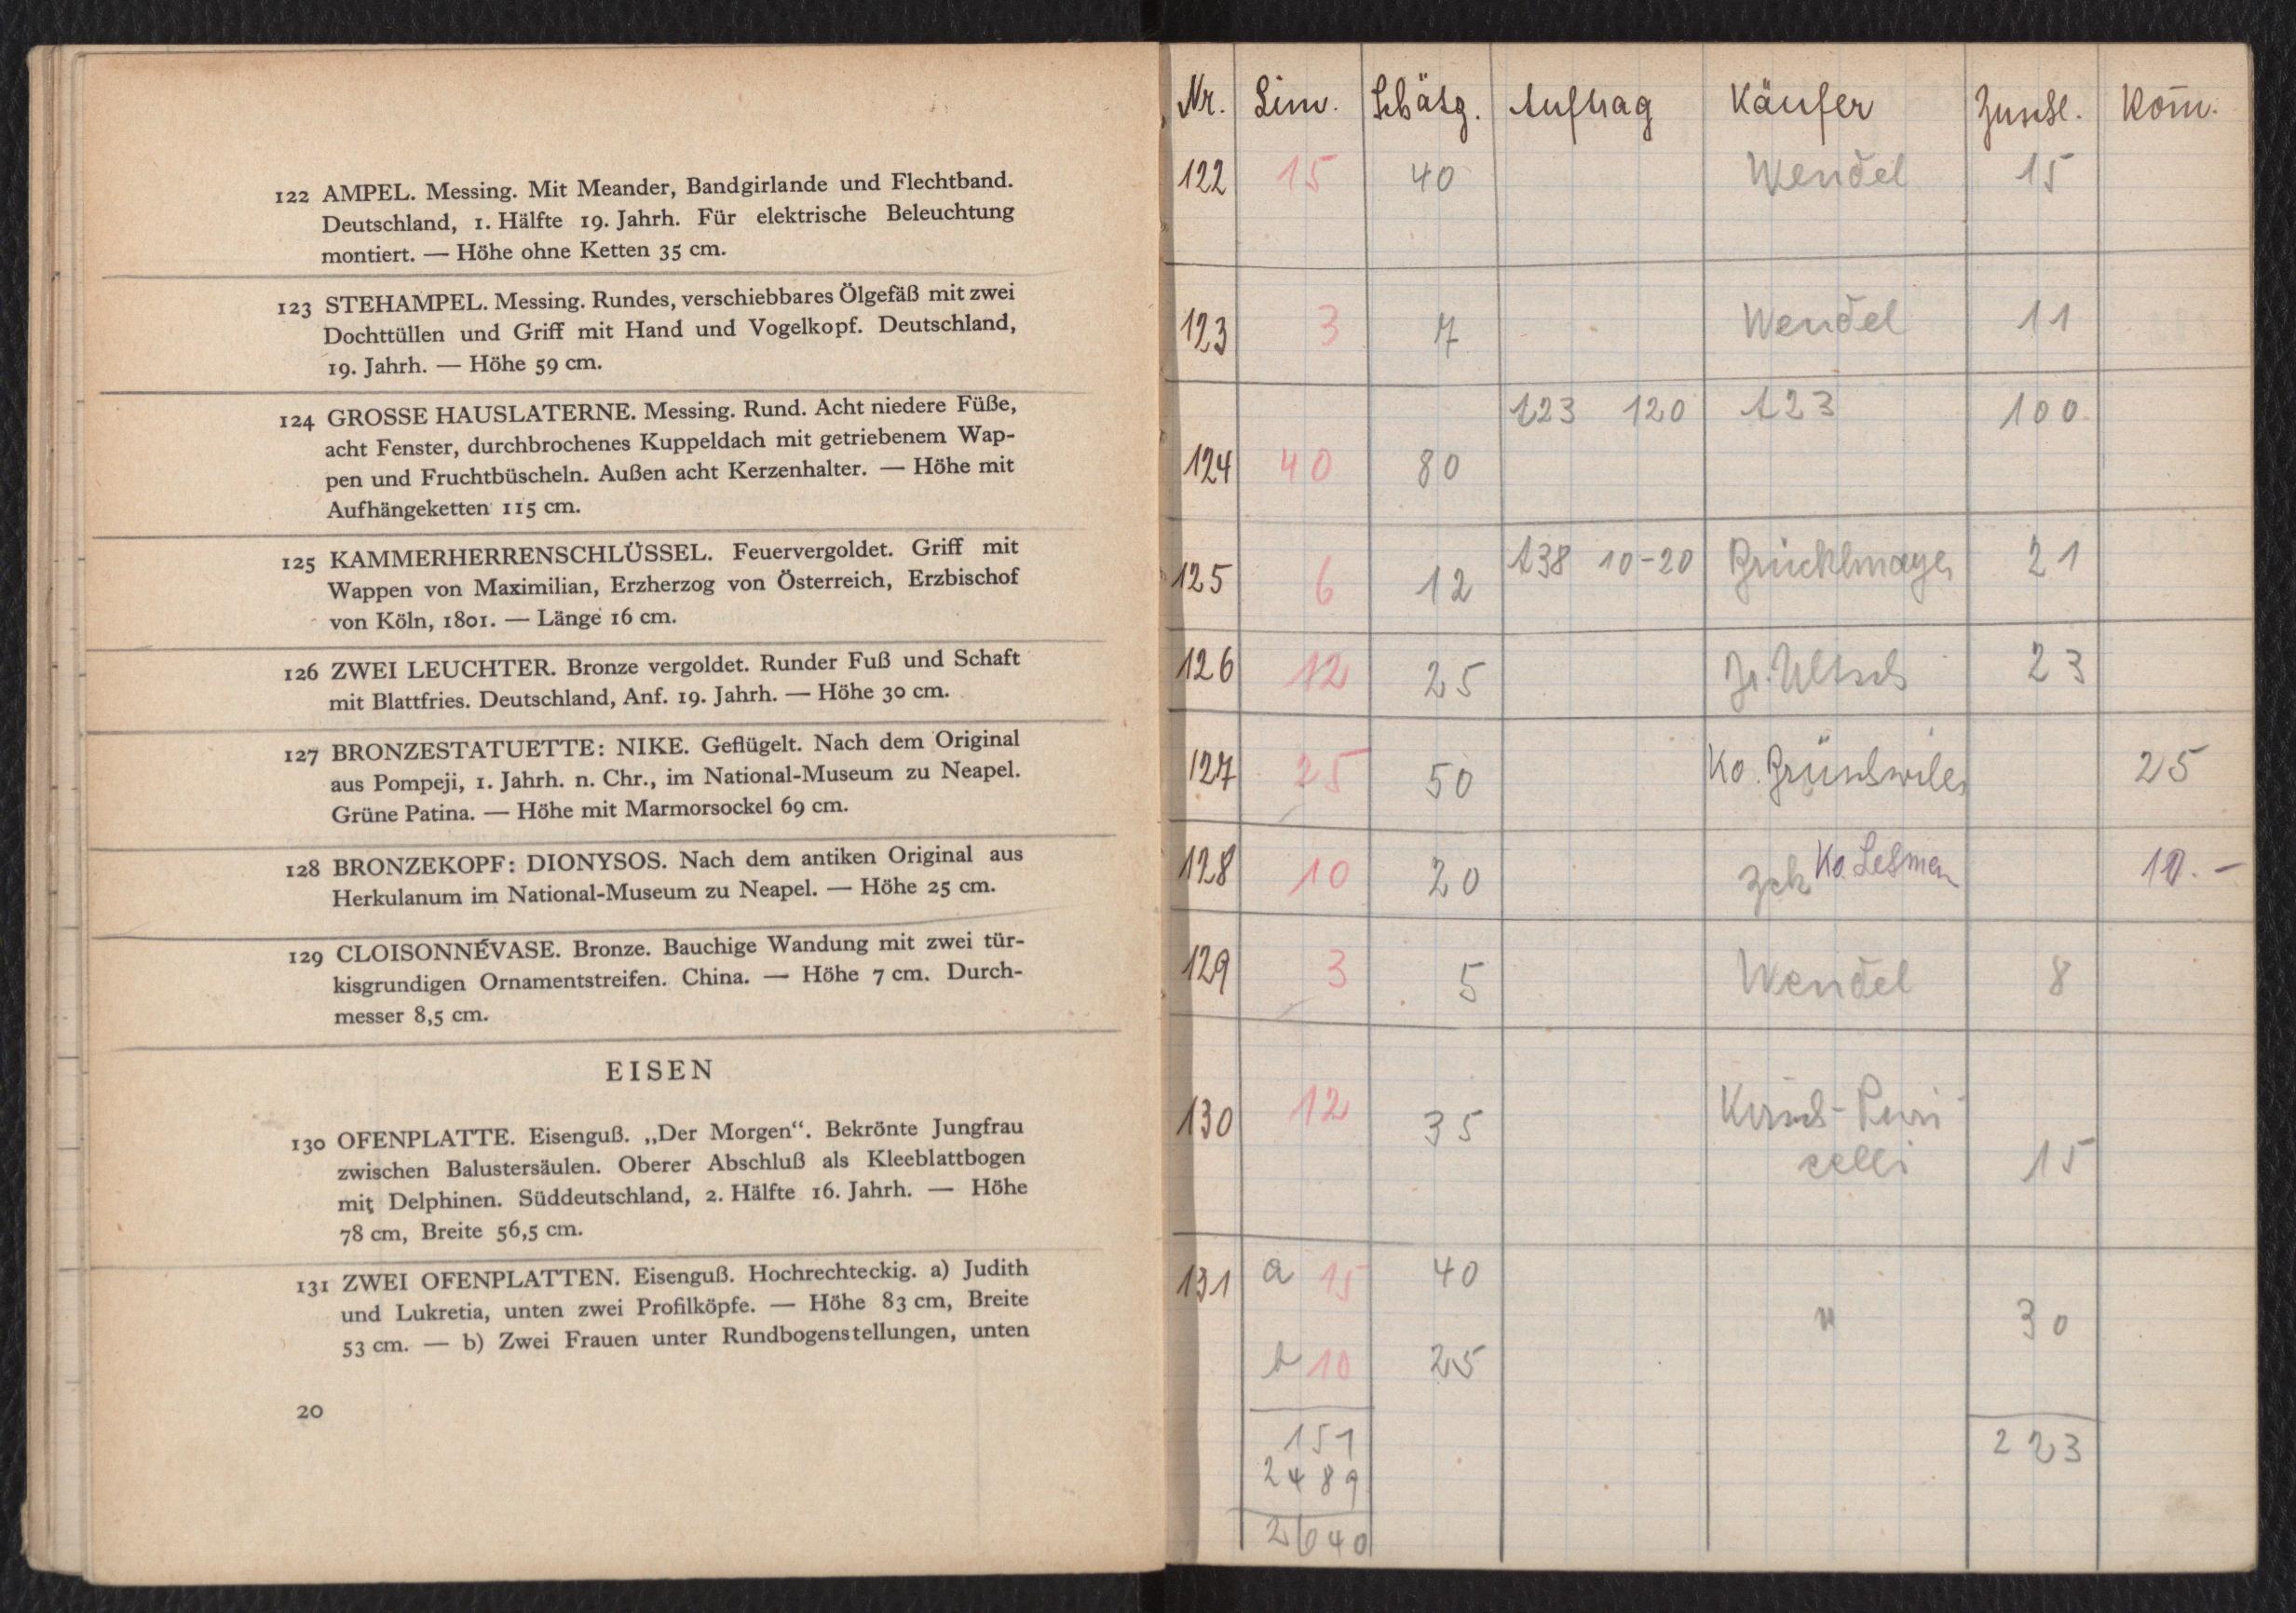 122 AMPEL. Messing. Mit Meander, Bandgirlande und Flechtband.
Deutschland, 1. Hälfte 19. Jahrh. Für elektrische Beleuchtung
montiert. — Höhe ohne Ketten 35 cm.
123 STEHAMPEL. Messing. Rundes, verschiebbares Ölgefäß mit zwei
Dochttüllen und Griff mit Hand und Vogelkopf. Deutschland,
19. Jahrh. — Höhe 59 cm.
124 GROSSE HAUSLATERNE. Messing. Rund. Acht niedere Füße,
acht Fenster, durchbrochenes Kuppeldach mit getriebenem Wap-
pen und Fruchtbüscheln. Außen acht Kerzenhalter. — Höhe mit
Aufhängeketten 115 cm.
125 KAMMERHERRENSCHLÜSSEL. Feuervergoldet. Griff mit
Wappen von Maximilian, Erzherzog von Österreich, Erzbischof
von Köln, 1801. — Länge 16 cm.
126 ZWEI LEUCHTER. Bronze vergoldet. Runder Fuß und Schaft
mit Blattfries. Deutschland, Anf. 19. Jahrh. — Höhe 30 cm.
127 BRONZESTATUETTE: NIKE. Geflügelt. Nach dem Original
aus Pompeji, 1. Jahrh. n. Chr., im National-Museum zu Neapel.
Grüne Patina. — Höhe mit Marmorsockel 69 cm.
128 BRONZEKOPF: DIONYSOS. Nach dem antiken Original aus
Herkulanum im National-Museum zu Neapel. — Höhe 25 cm.
129 CLOISONNÉVASE. Bronze. Bauchige Wandung mit zwei tür-
kisgrundigen Ornamentstreifen. China. — Höhe 7 cm. Durch-
messer 8,5 cm.
EISEN
130 OFENPLATTE. Eisenguß. „Der Morgen“. Bekrönte Jungfrau
zwischen Balustersäulen. Oberer Abschluß als Kleeblattbogen
mit Delphinen. Süddeutschland, 2. Hälfte 16. Jahrh. — Höhe
78 cm, Breite 56,5 cm.
131 ZWEI OFENPLATTEN. Eisenguß. Hochrechteckig. a) Judith
und Lukretia, unten zwei Profilköpfe. — Höhe 83 cm, Breite
53 cm. — b) Zwei Frauen unter Rundbogenstellungen, unten
20
Nr. Lim. Schätzg. Auftrag Käufer Zuschl. Kom̄.
122 15 40 Wendel 15
123 3 7 Wendel 11
123 120 123 100
124 40 80
125 6 12 138 10-20 21
126 12 25 23
127 25 50 Ko. 25
128 10 20 zck Ko. 10.-
129 3 5 Wendel 8
130 12 35 Kirsch-Puri
celli 15
131 a 15 40
" 30
b 10 25
151
223
2489
2640